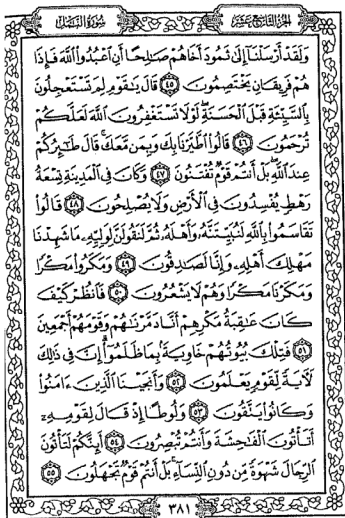 سورة النمل
الجزء التاسع عشر
وَلَقَدْ أَرْسَلْنَا إِلَىٰ ثَمُودَ أَخَاهُمْ صَٰلِحًا أَنِ اعْبُدُوا۟ اللَّهَ فَإِذَا
هُمْ فَرِيقَانِ يَخْتَصِمُونَ ٤٥ قَالَ يَٰقَوْمِ لِمَ تَسْتَعْجِلُونَ
بِالسَّيِّئَةِ قَبْلَ الْحَسَنَةِ لَوْلَا تَسْتَغْفِرُونَ اللَّهَ لَعَلَّكُمْ
تُرْحَمُونَ ٤٦ قَالُوا۟ اطَّيَّرْنَا بِكَ وَبِمَن مَّعَكَ قَالَ طَٰٓئِرُكُمْ
عِندَ اللَّهِ بَلْ أَنتُمْ قَوْمٌ تُفْتَنُونَ ٤٧ وَكَانَ فِي الْمَدِينَةِ تِسْعَةُ
رَهْطٍ يُفْسِدُونَ فِي الْأَرْضِ وَلَا يُصْلِحُونَ ٤٨ قَالُوا۟
تَقَاسَمُوا۟ بِاللَّهِ لَنُبَيِّتَنَّهُۥ وَأَهْلَهُۥ ثُمَّ لَنَقُولَنَّ لِوَلِيِّهِۦ مَا شَهِدْنَا
مَهْلِكَ أَهْلِهِۦ وَإِنَّا لَصَٰدِقُونَ ٤٩ وَمَكَرُوا۟ مَكْرًا
وَمَكَرْنَا مَكْرًا وَهُمْ لَا يَشْعُرُونَ ٥٠ فَانظُرْ كَيْفَ
كَانَ عَٰقِبَةُ مَكْرِهِمْ أَنَّا دَمَّرْنَٰهُمْ وَقَوْمَهُمْ أَجْمَعِينَ
٥١ فَتِلْكَ بُيُوتُهُمْ خَاوِيَةًۢ بِمَا ظَلَمُوٓا۟ إِنَّ فِي ذَٰلِكَ
لَءَايَةً لِّقَوْمٍ يَعْلَمُونَ ٥٢ وَأَنجَيْنَا الَّذِينَ ءَامَنُوا۟
وَكَانُوا۟ يَتَّقُونَ ٥٣ وَلُوطًا إِذْ قَالَ لِقَوْمِهِۦٓ
أَتَأْتُونَ الْفَٰحِشَةَ وَأَنتُمْ تُبْصِرُونَ ٥٤ أَئِنَّكُمْ لَتَأْتُونَ
الرِّجَالَ شَهْوَةً مِّن دُونِ النِّسَآءِ بَلْ أَنتُمْ قَوْمٌ تَجْهَلُونَ ٥٥
٣٨١